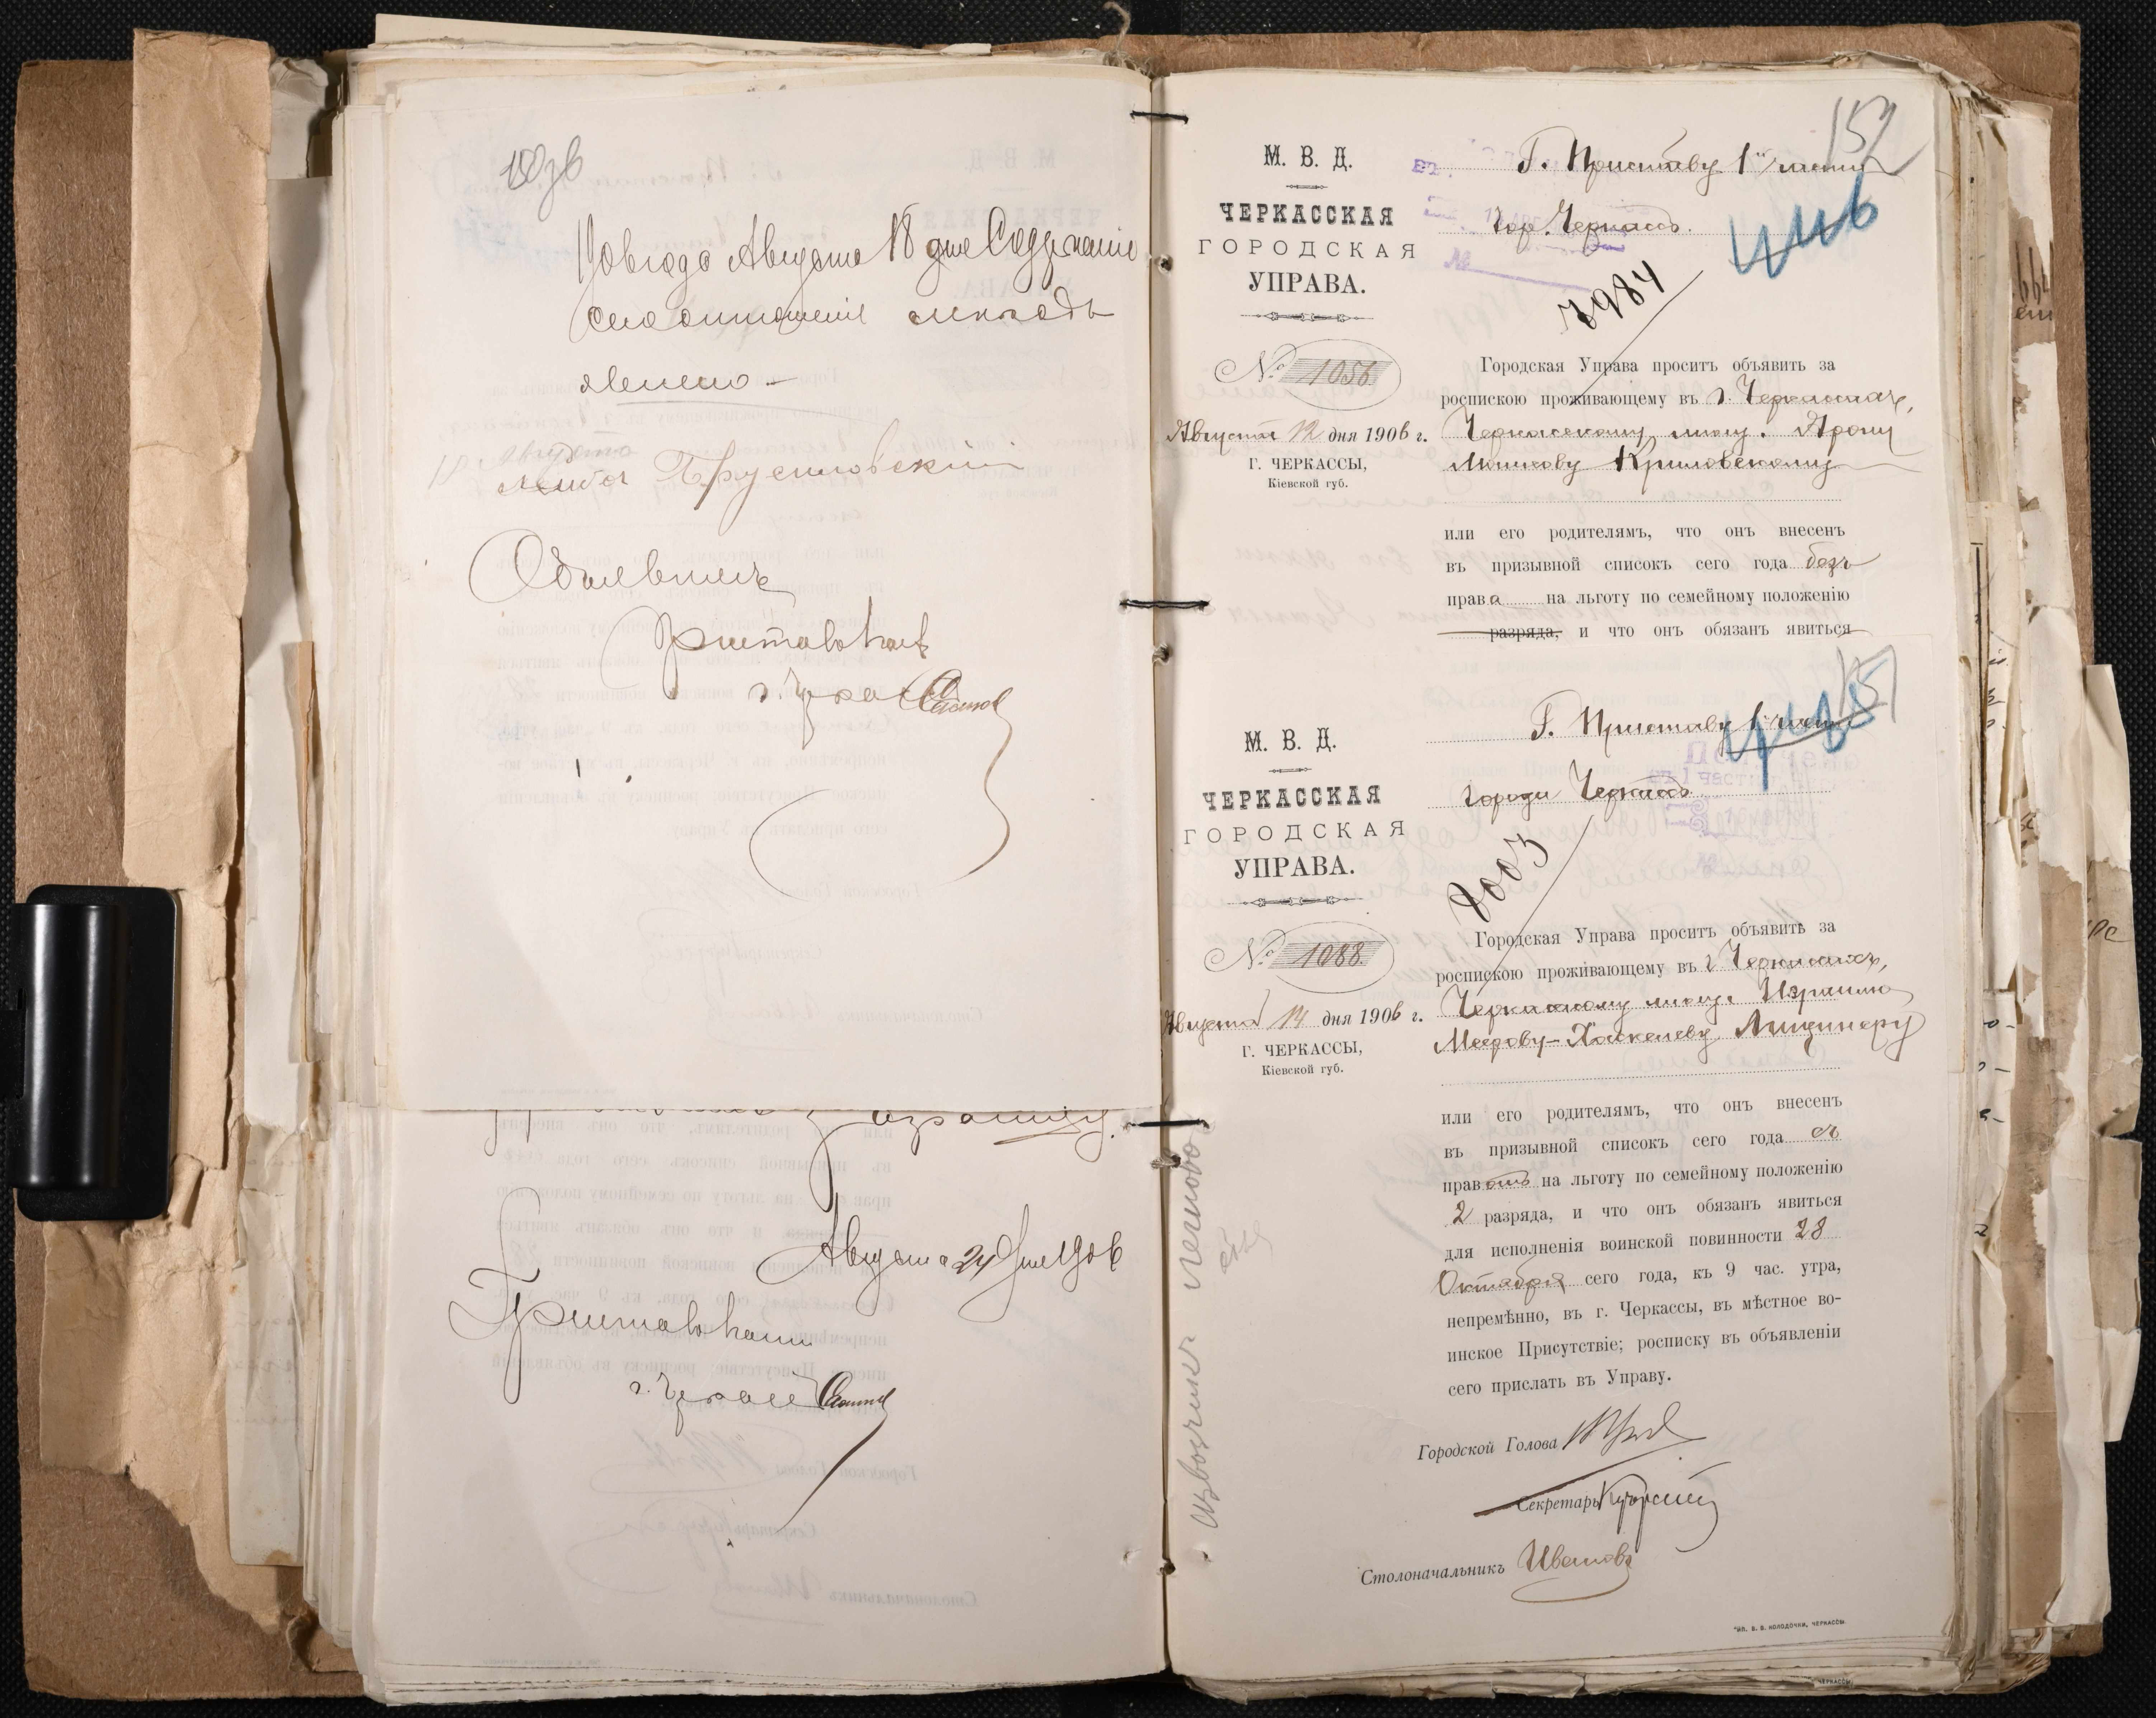 1906 года Августа 18 дня Содержание
сего отношения мне объ
явлено
18 Августа
Лейба Брусиловский
Объявилъ
Пристав
г. Черкас
Августа 24 дня 1906
Пристав
г. Черкас
М. В. Д.
ЧЕРКАССКАЯ
ГОРОДСКАЯ
УПРАВА.
№ 1056.
Августа 12 дня 1906 г.
Г. ЧЕРКАССЫ,
Кіевской губ.
Г. Приставу 1й части
Гор. Черкассъ.
7984
Городская Управа проситъ объявить за
роспискою проживающему въ г. Черкассахъ,
Черкасскому мѣщ. Арону
Крыловскому
или его родителямъ, что онъ внесенъ
въ призывной списокъ сего года безъ
права на льготу по семейному положенію
разряда, и что онъ обязанъ явиться
151
М. В. Д.
ЧЕРКАССКАЯ
ГОРОДСКАЯ
УПРАВА.
№ 1088.
Августа 14 дня 1906 г.
Г. ЧЕРКАССЫ,
Кіевской губ.
Г. Приставу 1й части
города Черкассъ
8003
Городская Управа проситъ объявить за
роспискою проживающему въ г. Черкассахъ,
Черкасскому мѣщ. Израилю
Меерову-Хаскелеву
или его родителямъ, что онъ внесенъ
въ призывной списокъ сего года съ
правомъ на льготу по семейному положенію
2 разряда, и что онъ обязанъ явиться
для исполненія воинской повинности 28
Октября сего года, къ 9 час. утра,
непремѣнно, въ г. Черкассы, въ мѣстное во-
инское Присутствіе; росписку въ объявленіи
сего прислать въ Управу.
Городской Голова
Секретарь
Столоначальникъ Ивановъ
ТИП. В. В. КОЛОДОЧКИ, ЧЕРКАССЫ.
извозчикъ легково